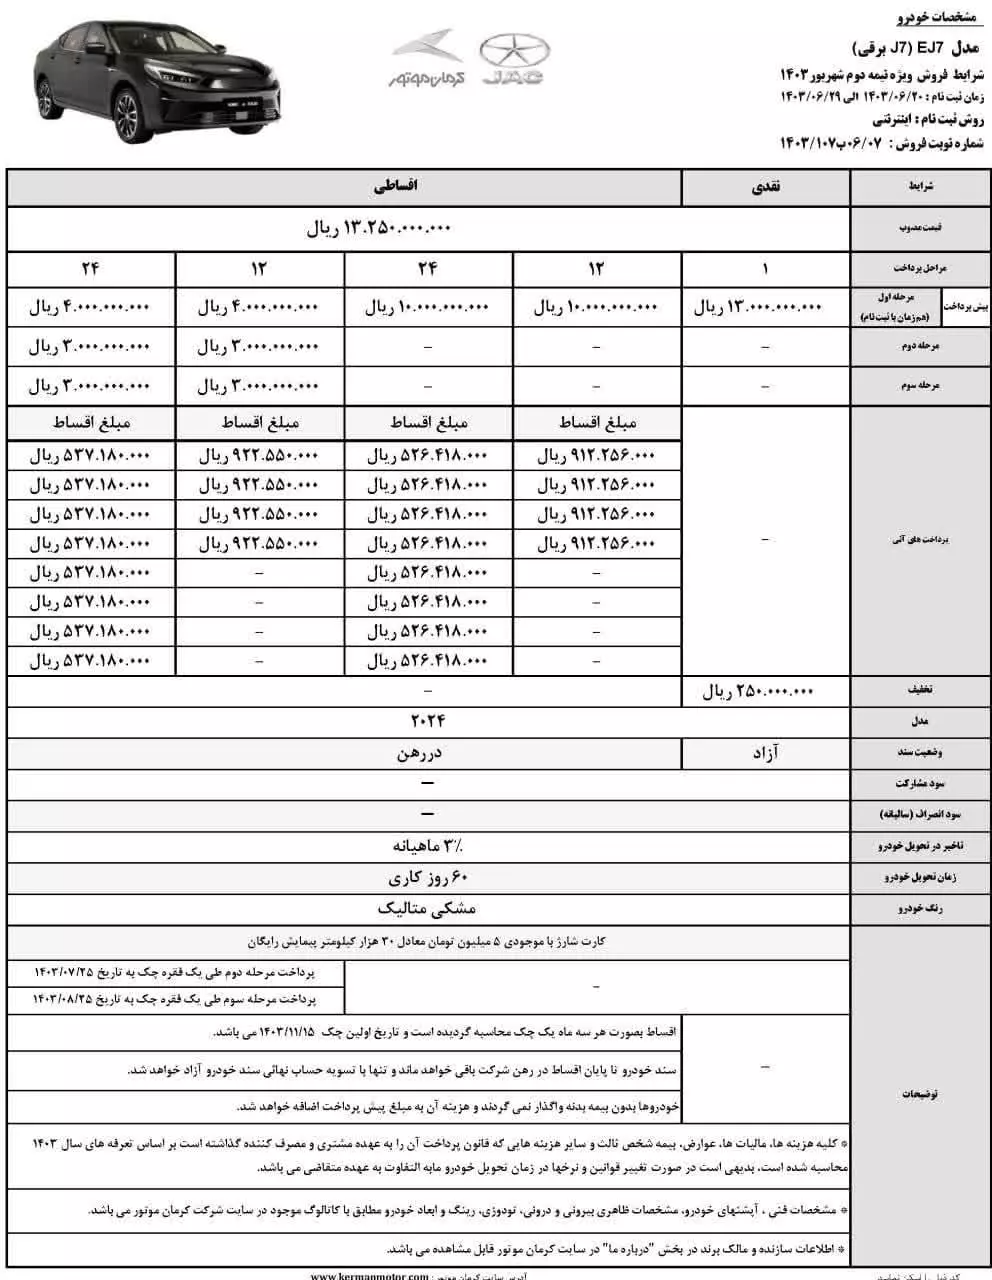 مشخصات خودرو
مدل EJ7 (J7 برقی)
شرایط فروش ویژه نیمه دوم شهریور ۱۴۰۳
زمان ثبت نام : ۱۴۰۳/۰۶/۲۰ الی ۱۴۰۳/۰۶/۲۹
روش ثبت نام : اینترنتی
شماره نوبت فروش : ۰۶/۰۷ب۱۴۰۳/۱۰۷
JAC
کرمان موتور
شرایط نقدی اقساطی
قیمت مصوب ۱۳.۲۵۰.۰۰۰.۰۰۰ ریال
مراحل پرداخت ۱ ۱۲ ۲۴ ۱۲ ۲۴
پیش پرداخت مرحله اول (همزمان با ثبت نام) ۱۳.۰۰۰.۰۰۰.۰۰۰ ریال ۱۰.۰۰۰.۰۰۰.۰۰۰ ریال ۱۰.۰۰۰.۰۰۰.۰۰۰ ریال ۴.۰۰۰.۰۰۰.۰۰۰ ریال ۴.۰۰۰.۰۰۰.۰۰۰ ریال
مرحله دوم – – – ۳.۰۰۰.۰۰۰.۰۰۰ ریال ۳.۰۰۰.۰۰۰.۰۰۰ ریال
مرحله سوم – – – ۳.۰۰۰.۰۰۰.۰۰۰ ریال ۳.۰۰۰.۰۰۰.۰۰۰ ریال
مبلغ اقساط مبلغ اقساط مبلغ اقساط مبلغ اقساط
۹۱۲.۲۵۶.۰۰۰ ریال ۵۲۶.۴۱۸.۰۰۰ ریال ۹۲۲.۵۵۰.۰۰۰ ریال ۵۳۷.۱۸۰.۰۰۰ ریال
۹۱۲.۲۵۶.۰۰۰ ریال ۵۲۶.۴۱۸.۰۰۰ ریال ۹۲۲.۵۵۰.۰۰۰ ریال ۵۳۷.۱۸۰.۰۰۰ ریال
۹۱۲.۲۵۶.۰۰۰ ریال ۵۲۶.۴۱۸.۰۰۰ ریال ۹۲۲.۵۵۰.۰۰۰ ریال ۵۳۷.۱۸۰.۰۰۰ ریال
پرداخت های آتی – ۹۱۲.۲۵۶.۰۰۰ ریال ۵۲۶.۴۱۸.۰۰۰ ریال ۹۲۲.۵۵۰.۰۰۰ ریال ۵۳۷.۱۸۰.۰۰۰ ریال
– ۵۲۶.۴۱۸.۰۰۰ ریال – ۵۳۷.۱۸۰.۰۰۰ ریال
– ۵۲۶.۴۱۸.۰۰۰ ریال – ۵۳۷.۱۸۰.۰۰۰ ریال
– ۵۲۶.۴۱۸.۰۰۰ ریال – ۵۳۷.۱۸۰.۰۰۰ ریال
– ۵۲۶.۴۱۸.۰۰۰ ریال – ۵۳۷.۱۸۰.۰۰۰ ریال
تخفیف ۲۵۰.۰۰۰.۰۰۰ ریال –
مدل ۲۰۲۴
وضعیت سند آزاد در رهن
سود مشارکت –
سود انصراف (سالیانه) –
تاخیر در تحویل خودرو ۳٪ ماهیانه
زمان تحویل خودرو ۶۰ روز کاری
رنگ خودرو مشکی متالیک
توضیحات
کارت شارژ با موجودی ۵ میلیون تومان معادل ۳۰ هزار کیلومتر پیمایش رایگان
– پرداخت مرحله دوم طی یک فقره چک به تاریخ ۱۴۰۳/۰۷/۲۵
پرداخت مرحله سوم طی یک فقره چک به تاریخ ۱۴۰۳/۰۸/۲۵
اقساط بصورت هر سه ماه یک چک محاسبه گردیده است و تاریخ اولین چک ۱۴۰۳/۱۱/۱۵ می باشد.
– سند خودرو تا پایان اقساط در رهن شرکت باقی خواهد ماند و تنها با تسویه حساب نهائی سند خودرو آزاد خواهد شد.
خودروها بدون بیمه بدنه واگذار نمی گردند و هزینه آن به مبلغ پیش پرداخت اضافه خواهد شد.
* کلیه هزینه ها، مالیات ها، عوارض، بیمه شخص ثالث و سایر هزینه هایی که قانون پرداخت آن را به عهده مشتری و مصرف کننده گذاشته است بر اساس تعرفه های سال ۱۴۰۳
محاسبه شده است، بدیهی است در صورت تغییر قوانین و نرخها در زمان تحویل خودرو مابه التفاوت به عهده متقاضی می باشد.
* مشخصات فنی ، آپشنهای خودرو، مشخصات ظاهری بیرونی و درونی، تودوزی، رینگ و ابعاد خودرو مطابق با کاتالوگ موجود در سایت شرکت کرمان موتور می باشد.
* اطلاعات سازنده و مالک برند در بخش "درباره ما" در سایت کرمان موتور قابل مشاهده می باشد.
آدرس سایت کرمان موتور : www.kermanmotor.com